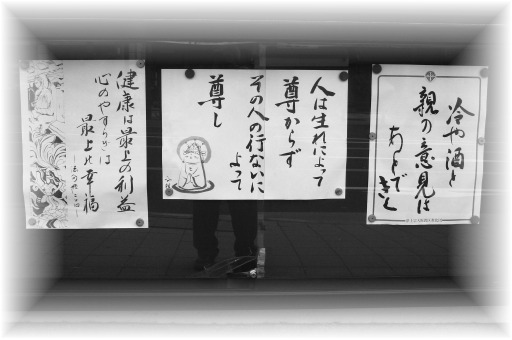 冷や酒と
親の意見は
あとできく
人は生れによって
尊からず
その人の行ないに
よって
尊し
健康は最上の利益
心のやすらぎは
最上の幸福